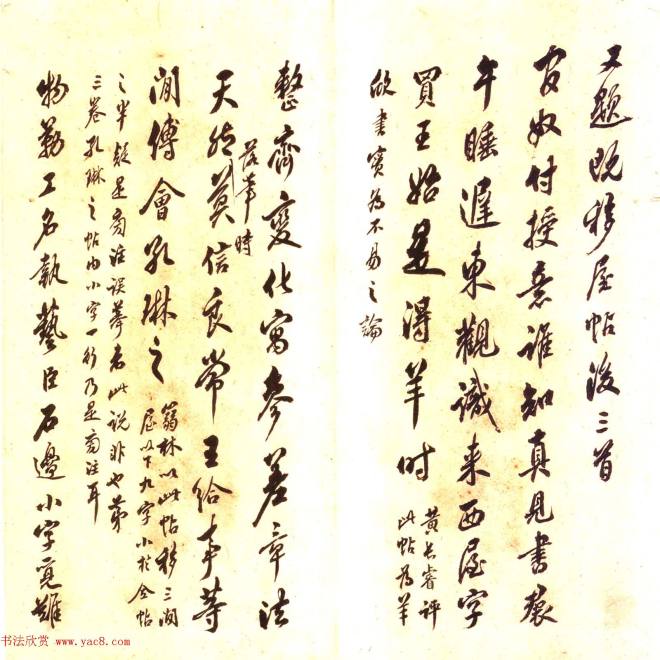 又題既移屋帖後三首
官奴付授意誰知真見書裴
午睡遲東觀識来西屋字
買王始是得羊時
黃長睿評
此帖為羊
欣書實為不易之論
整齊變化寓參差章法
天然莫信良常王給事等
落筆時
閒傅會孔琳之
翁林以此帖移三閒
屋以下九字小於全帖
之半疑是旁注誤摹者此說非也第
三卷孔琳之帖內小字一行乃是旁注耳
物勒工名執藝臣石邊小字覓難
书法欣赏 www.yac8.com